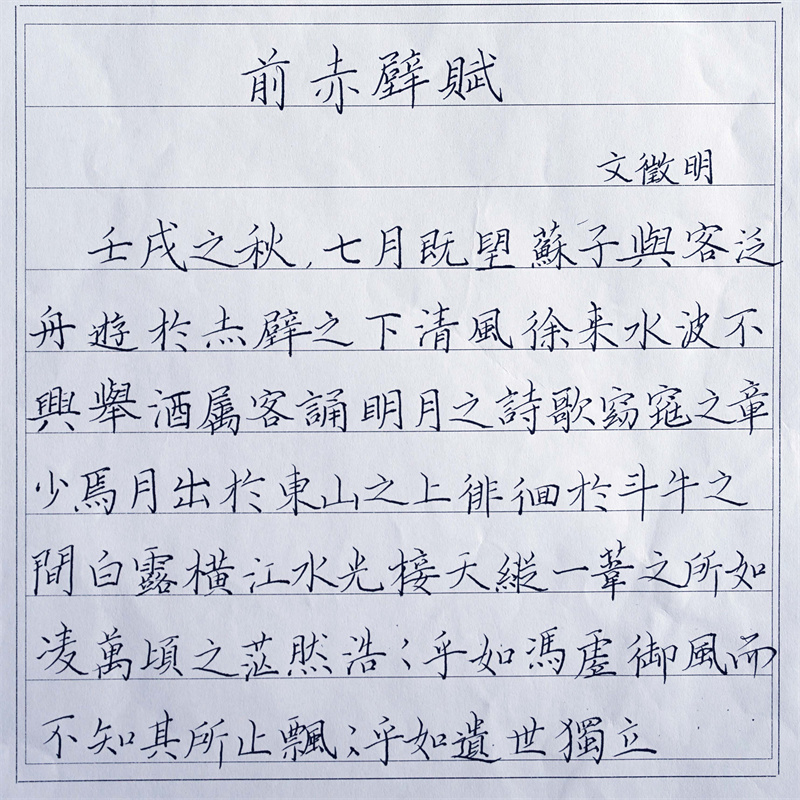 前赤壁賦
文徵明
壬戌之秋,七月既望蘇子與客泛
舟遊於赤壁之下清風徐来水波不
興舉酒属客誦明月之詩歌窈窕之章
少焉月出於東山之上徘徊於斗牛之
間白露横江水光接天縱一葦之所如
凌萬頃之茫然浩〻乎如馮虚御風而
不知其所止飄〻乎如遺世獨立